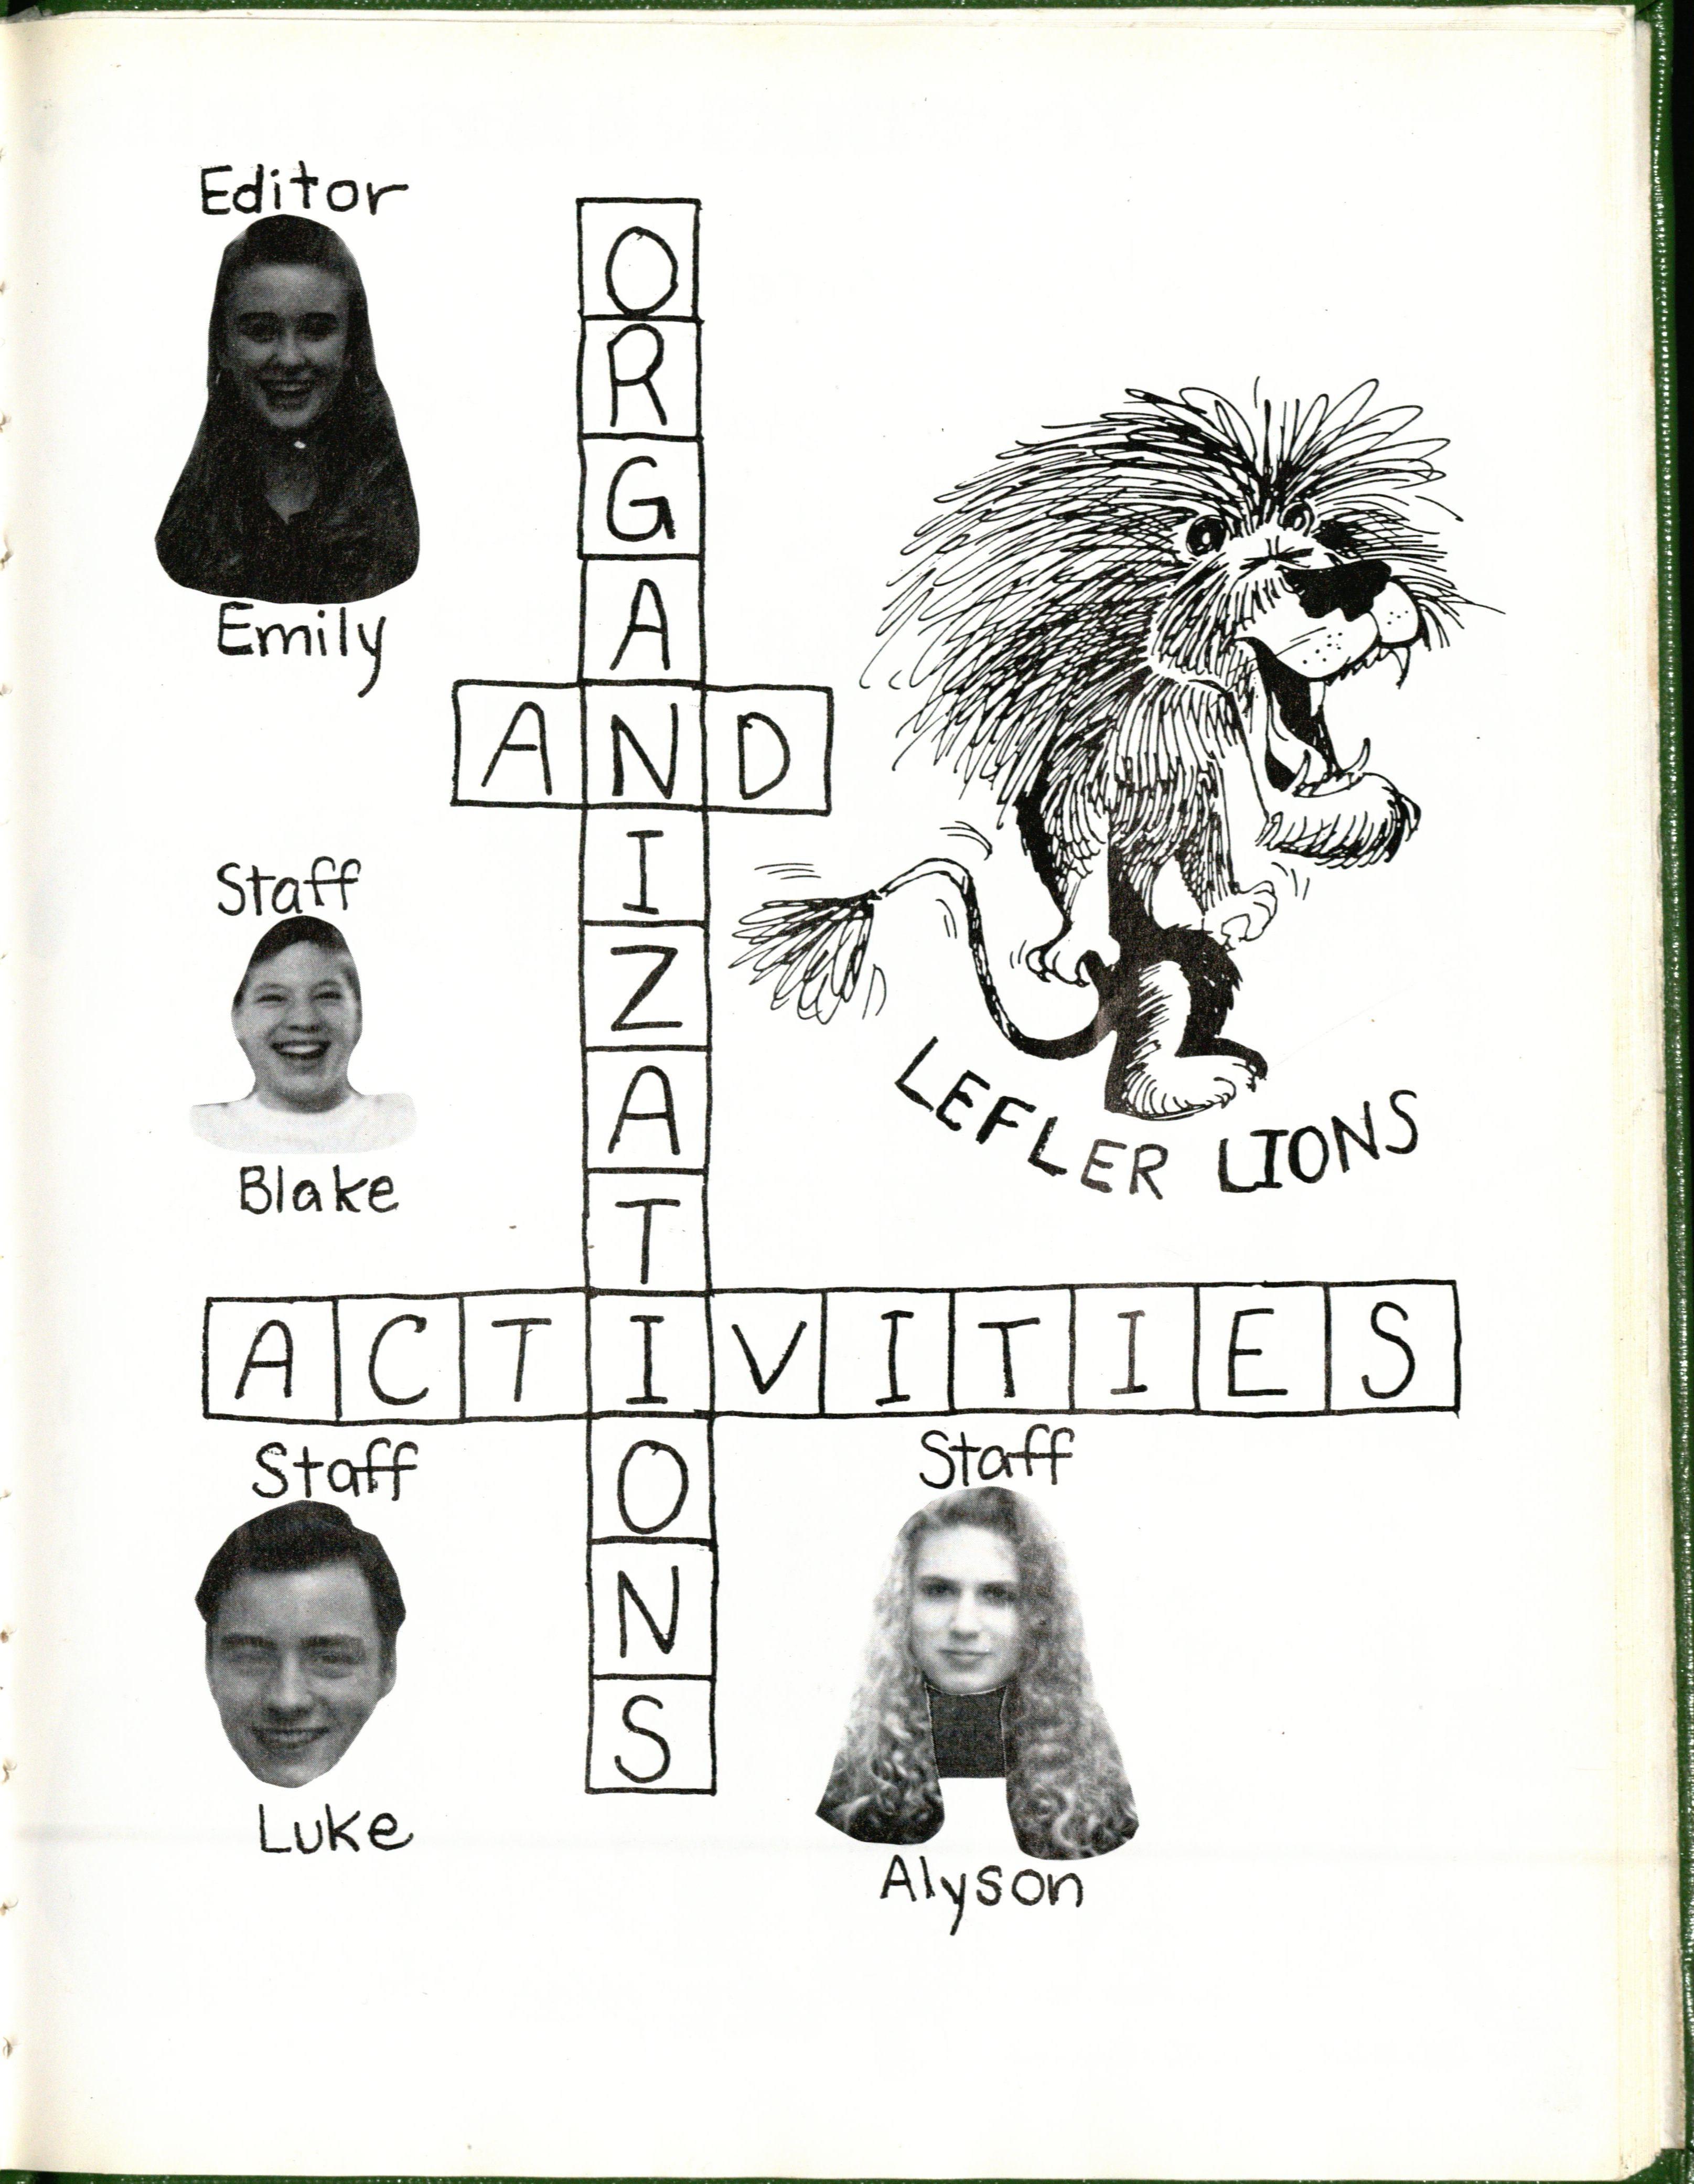 Editor
Emily
ORGANIZATIONS
AND
Staff
Blake
LEFLER LIONS
ACTIVITIES
Staff
Luke
Staff
Alyson